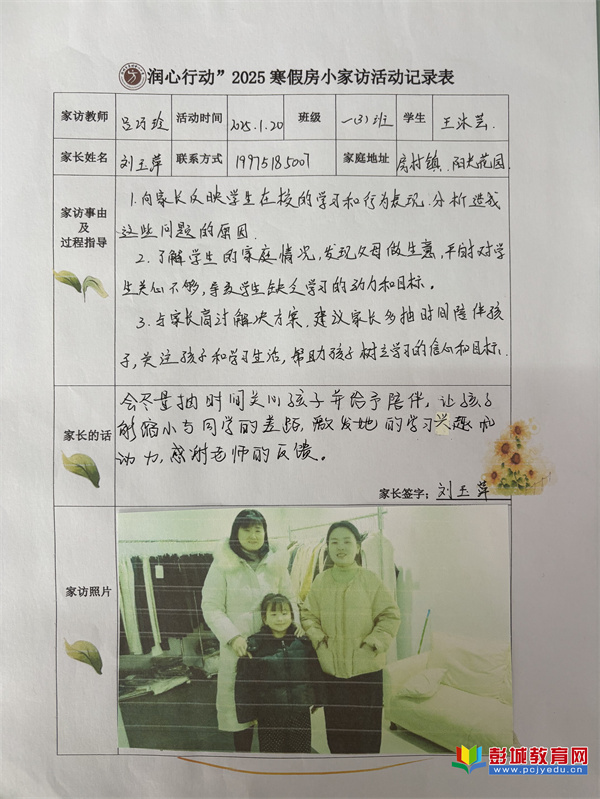 润心行动”2025寒假房小家访活动记录表
家访教师 吕巧玲 活动时间 2025.1.20 班级 一(3)班 学生 王沐芸
家长姓名 刘玉萍 联系方式 19975185007 家庭地址 房村镇 阳光花园
家访事由
及
过程指导
1.向家长反映学生在校的学习和行为表现.分析造成
这些问题的原因.
2.了解学生的家庭情况,发现父母做生意,平时对学
生关心不够,导致学生缺乏学习的动力和目标。
3.与家长商讨解决方案.建议家长多抽时间陪伴孩
子,关注孩子和学习生活,帮助孩子树立学习的信心和目标.
家长的话
会尽量抽时间关心孩子并给予陪伴,让孩子
能缩小与同学的差距,激发她的学习兴趣和
动力,感谢老师的反馈。
家长签字:刘玉萍
家访照片
彭城教育网
www.pcjyedu.cn